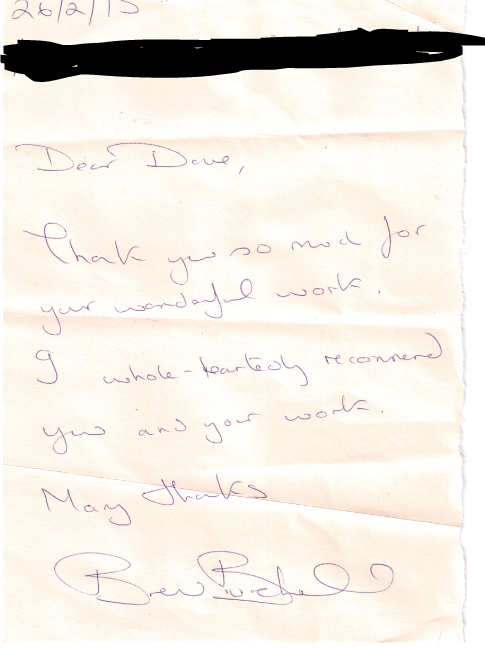 26/2/15
Dear Dave,
Thank you so much for
your wonderful work.
I whole-heartedly recommend
you and your work.
Many thanks